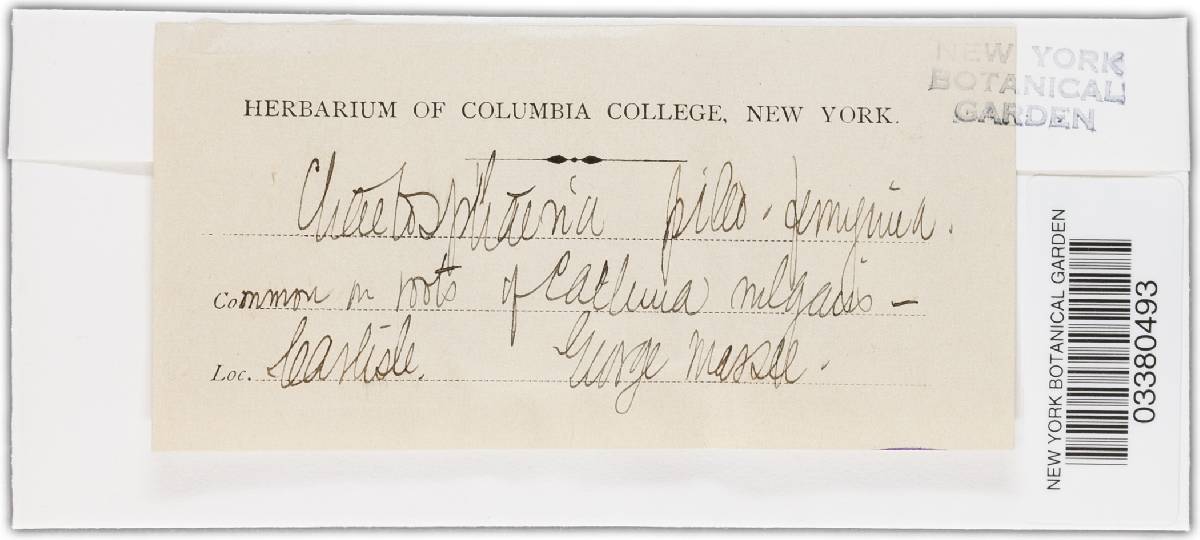 NEW YORK
BOTANICAL
GARDEN
HERBARIUM OF COLUMBIA COLLEGE, NEW YORK.
Chaetosphaeria pileo-ferruginea.
Common on roots of Calluna vulgaris –
Loc. Carlisle. George Massee.
NEW YORK BOTANICAL GARDEN
03380493